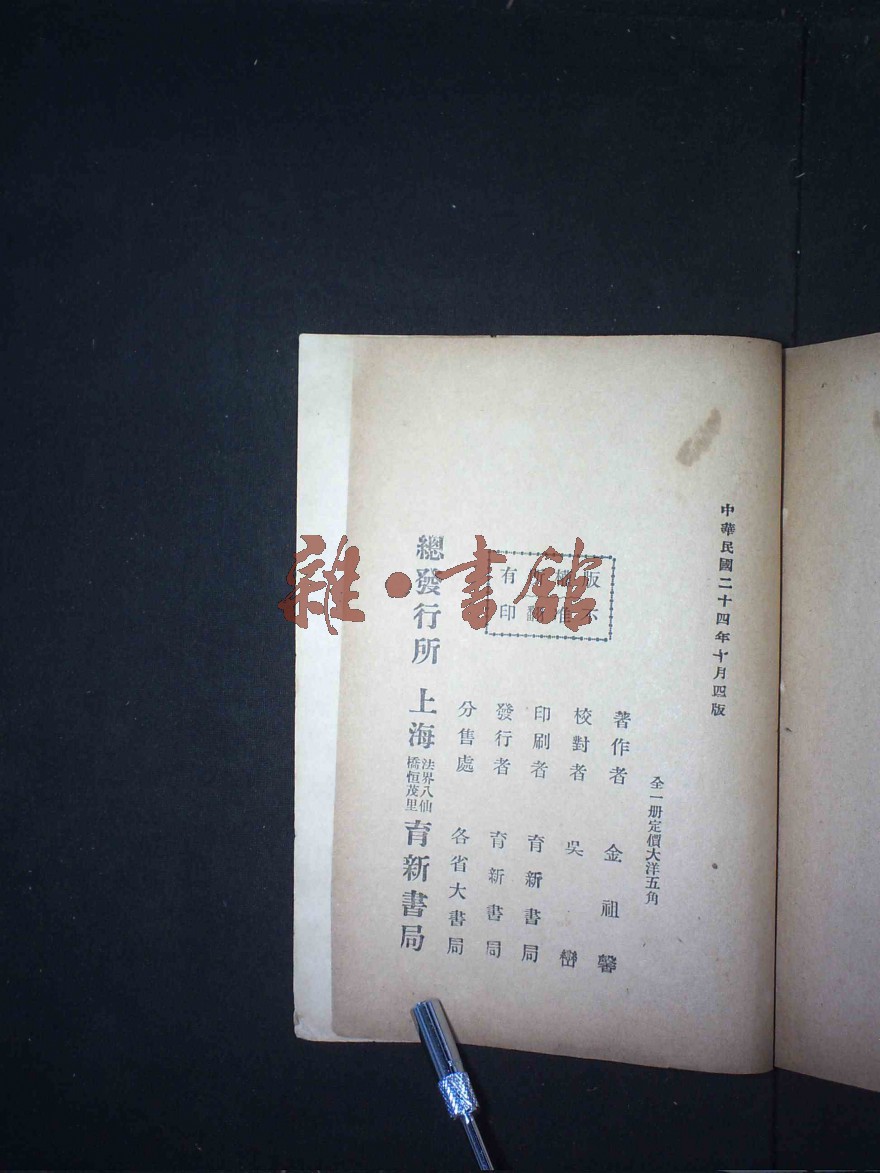 中華民國二十四年十月四版
全一册定價大洋五角
著作者 金祖馨
校對者 吳巒
印刷者 育新書局
發行者 育新書局
分售處 各省大書局
版權所有
不准翻印
總發行所 上海 法界八仙橋恒茂里 育新書局
雜·書館